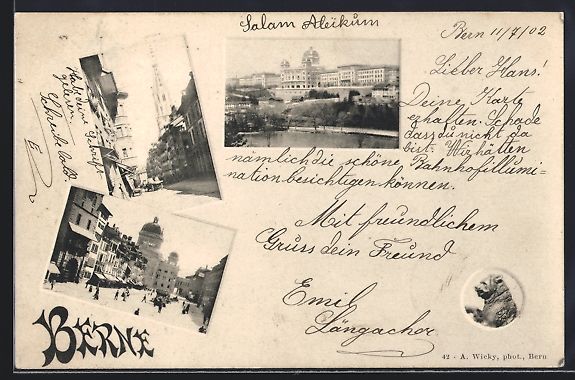 Salam Aleïkum
Bern 11/7/02
Lieber Hans!
Deine Karte
erhalten. Schade
dass du nicht da
bist. Wir hätten
nämlich die schöne Bahnhofillumi=
nation besichtigen können.
Mit freundlichem
Gruss dein Freund
Emil
Längacher
Hab deine
Schreibe bald
E
BERNE
42 - A. Wicky, phot., Bern